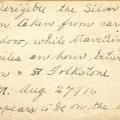 Dirigible the Silver
n taken from car
dow, while travellin
iles an hour betw
n & Folkstone
Aug. 27/16
pears to be on the